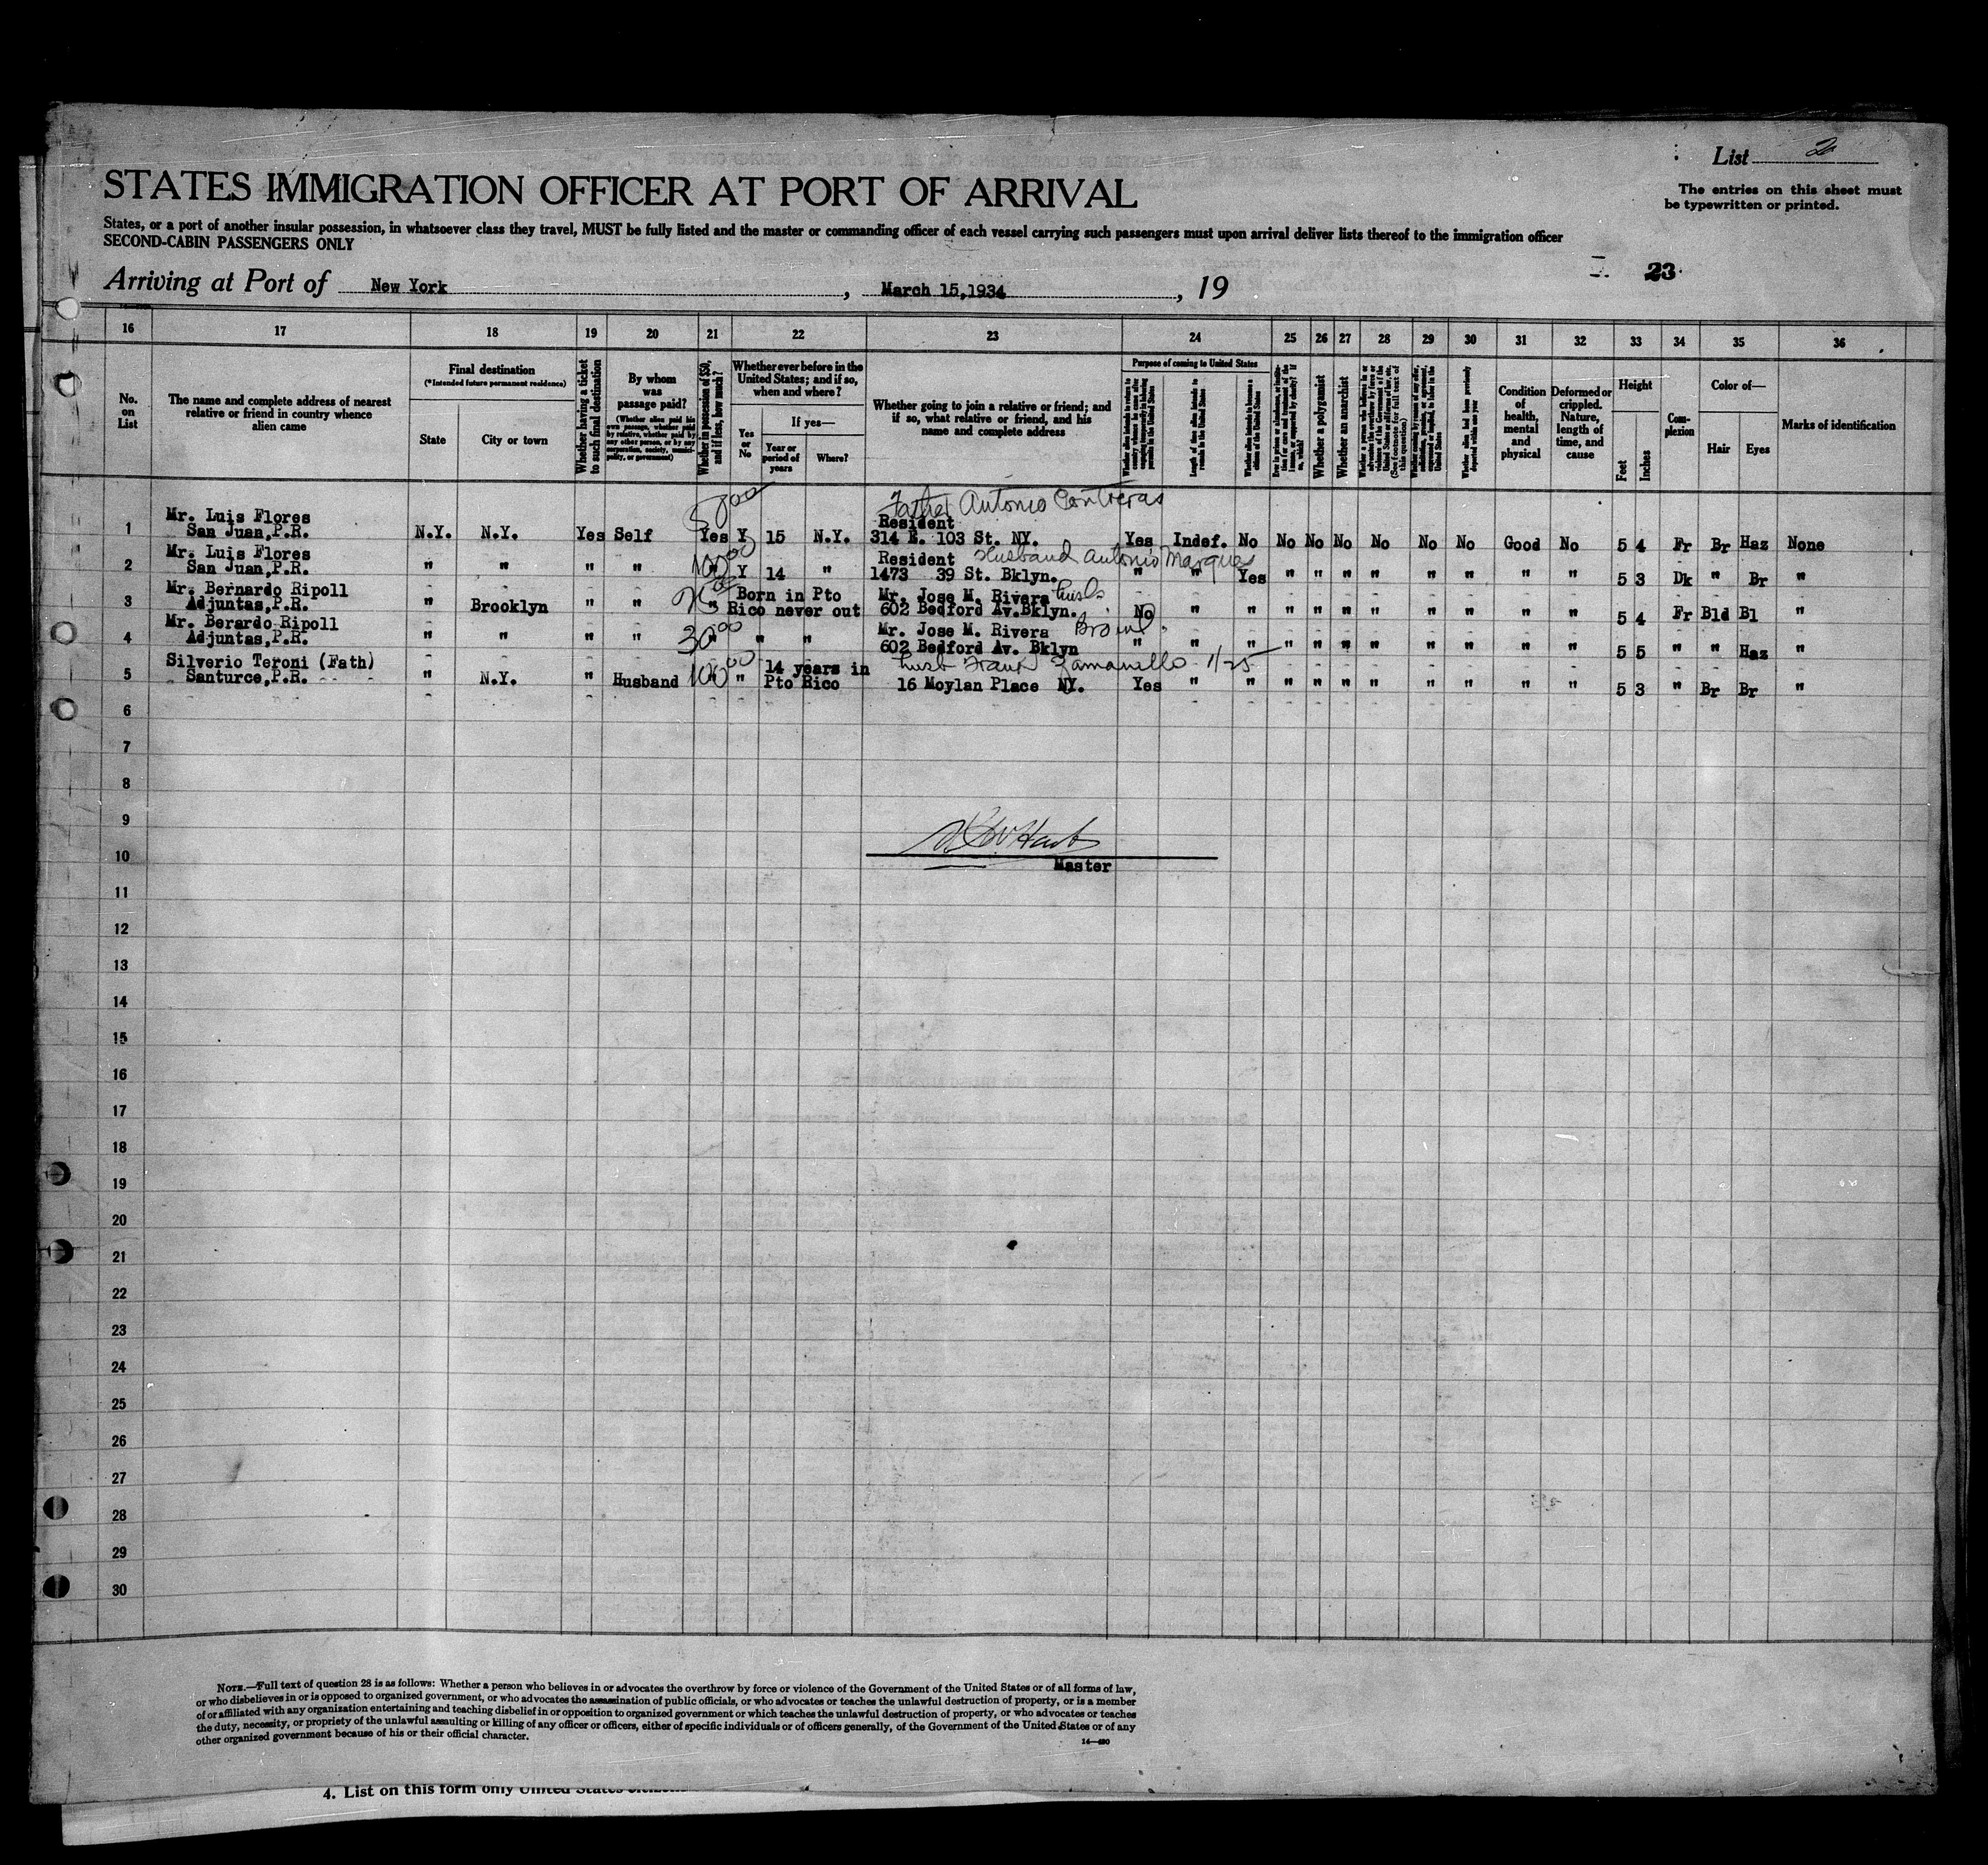 List 2
STATES IMMIGRATION OFFICER AT PORT OF ARRIVAL
The entries on this sheet must
be typewritten or printed.
States, or a port of another insular possession, in whatsoever class they travel, MUST be fully listed and the master or commanding officer of each vessel carrying such passengers must upon arrival deliver lists thereof to the immigration officer
SECOND-CABIN PASSENGERS ONLY
23
Arriving at Port of New York, March 15,1934, 19
16 17 18 19 20 21 22 23 24 25 26 27 28 29 30 31 32 33 34 35 36
No. on List
The name and complete address of nearest relative or friend in country whence alien came
Final destination
(*Intended future permanent residence)
State
City or town
Whether having a ticket to such final destination
By whom was passage paid?
(Whether alien paid his own passage, whether paid by relative, whether paid by any other person, or by any corporation, society, municipality, or government)
Whether in possession of $50, and if less, how much?
Whether ever before in the United States; and if so, when and where?
Yes or No
If yes—
Year or period of years
Where?
Whether going to join a relative or friend; and if so, what relative or friend, and his name and complete address
Purpose of coming to United States
Length of time alien intends to remain in the United States
Whether alien intends to become a citizen of the United States
Whether a polygamist
Whether an anarchist
(See footnote for full text of this question)
Whether alien had been previously deported within one year
Condition of health, mental and physical
Deformed or crippled. Nature, length of time, and cause
Height
Feet
Inches
Complexion
Color of—
Hair
Eyes
Marks of identification
Father Antonio Contreras
1 Mr. Luis Flores Resident
San Juan,P.R. N.Y. N.Y. Yes Self Yes Y 15 N.Y. 314 E. 103 St. NY. Yes Indef. No No No No No No No Good No 5 4 Fr Br Haz None
2 Mr. Luis Flores 100 00 Resident Husband Antonio Marques
San Juan,P.R. " " " " " Y 14 " 1473 39 St. Bklyn. " " Yes " " " " " " " " 5 3 Dk " Br "
3 Mr. Bernardo Ripoll Born in Pto Mr. Jose M. Rivera husb.
Adjuntas,P.R. " Brooklyn " " " Rico never out 602 Bedford Av.Bklyn. No " " " " " " " " " " 5 4 Fr Bld Bl "
4 Mr. Berardo Ripoll 30 00 Mr. Jose M. Rivera
Adjuntas,P.R. " " " " " " " 602 Bedford Av. Bklyn " " " " " " " " " " " 5 5 " " Haz "
5 Silverio Teroni (Fath) 100 00 14 years in husb Frank
Santurce,P.R. " N.Y. " Husband " " Pto Rico 16 Moylan Place NY. Yes " " " " " " " " " " 5 3 " Br Br "
6
7
8
9
10
Master
11
12
13
14
15
16
17
18
19
20
21
22
23
24
25
26
27
28
29
30
NOTE.—Full text of question 28 is as follows: Whether a person who believes in or advocates the overthrow by force or violence of the Government of the United States or of all forms of law,
or who disbelieves in or is opposed to organized government, or who advocates the assassination of public officials, or who advocates or teaches the unlawful destruction of property, or is a member
of or affiliated with any organization entertaining and teaching disbelief in or opposition to organized government or which teaches the unlawful destruction of property, or who advocates or teaches
the duty, necessity, or propriety of the unlawful assaulting or killing of any officer or officers, either of specific individuals or of officers generally, of the Government of the United States or of any
other organized government because of his or their official character.
14—480
4. List on this form only United States